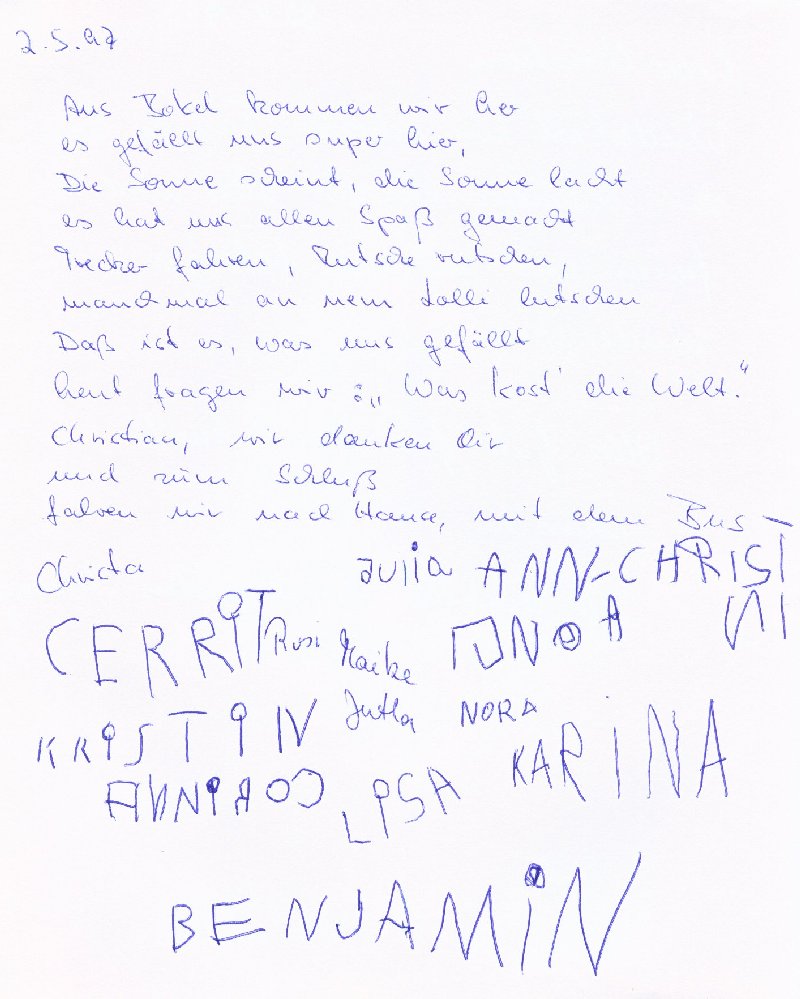 2.5.97
Aus Bokel kommen wir her
es gefällt uns super hier,
Die Sonne scheint, die Sonne lacht
es hat uns allen Spaß gemacht
Trecker fahren, Rutsche rutschen,
manchmal an nem Lolli lutschen
Daß ist es, was uns gefällt
heut fragen wir: „Was kost' die Welt."
Christian, wir danken dir
und zum Schluß
fahren wir nach Hause, mit dem Bus –
Christa Julia ANN-CHRISTI
NI
CERRIT Rosi Maike
KRISTIN Jutta NORA
CORINNA LISA KARINA
BENJAMIN